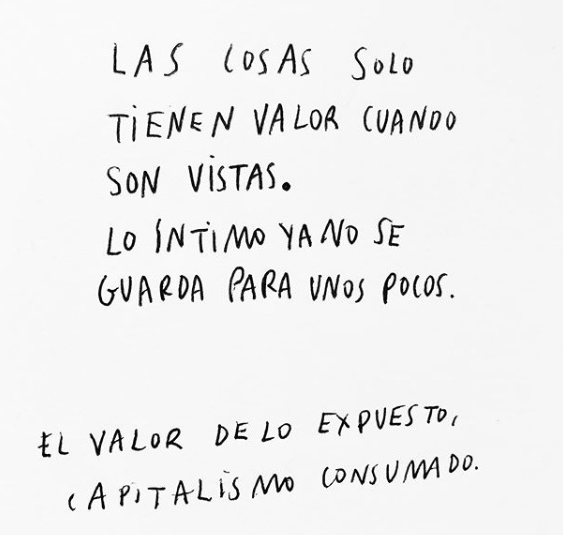 LAS COSAS SOLO
TIENEN VALOR CUANDO
SON VISTAS.
LO ÍNTIMO YA NO SE
GUARDA PARA UNOS POCOS.
EL VALOR DE LO EXPUESTO,
CAPITALISMO CONSUMADO.